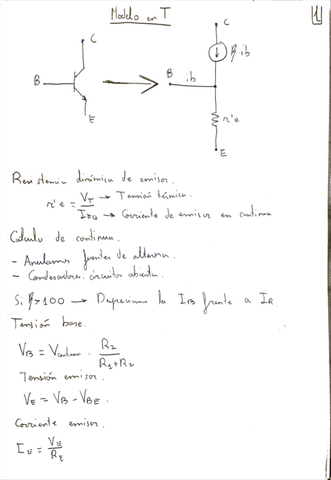 Modelo en T
1
C
B
E
C
β·ib
B
ib
r'e
E
Resistencia dinámica de emisor.
r'e = VT / IEQ
→ Tensión térmica
→ Corriente de emisor en continua
Calculo de continua.
- Anulamos fuentes de alterna.
- Condensadores circuitos abiertos.
Si β>100 → Despreciamos la IB frente a IR
Tensión base.
VB = Vcontinua · R2 / R1+R2
Tensión emisor.
VE = VB - VBE.
Corriente emisor.
IE = VE / RE